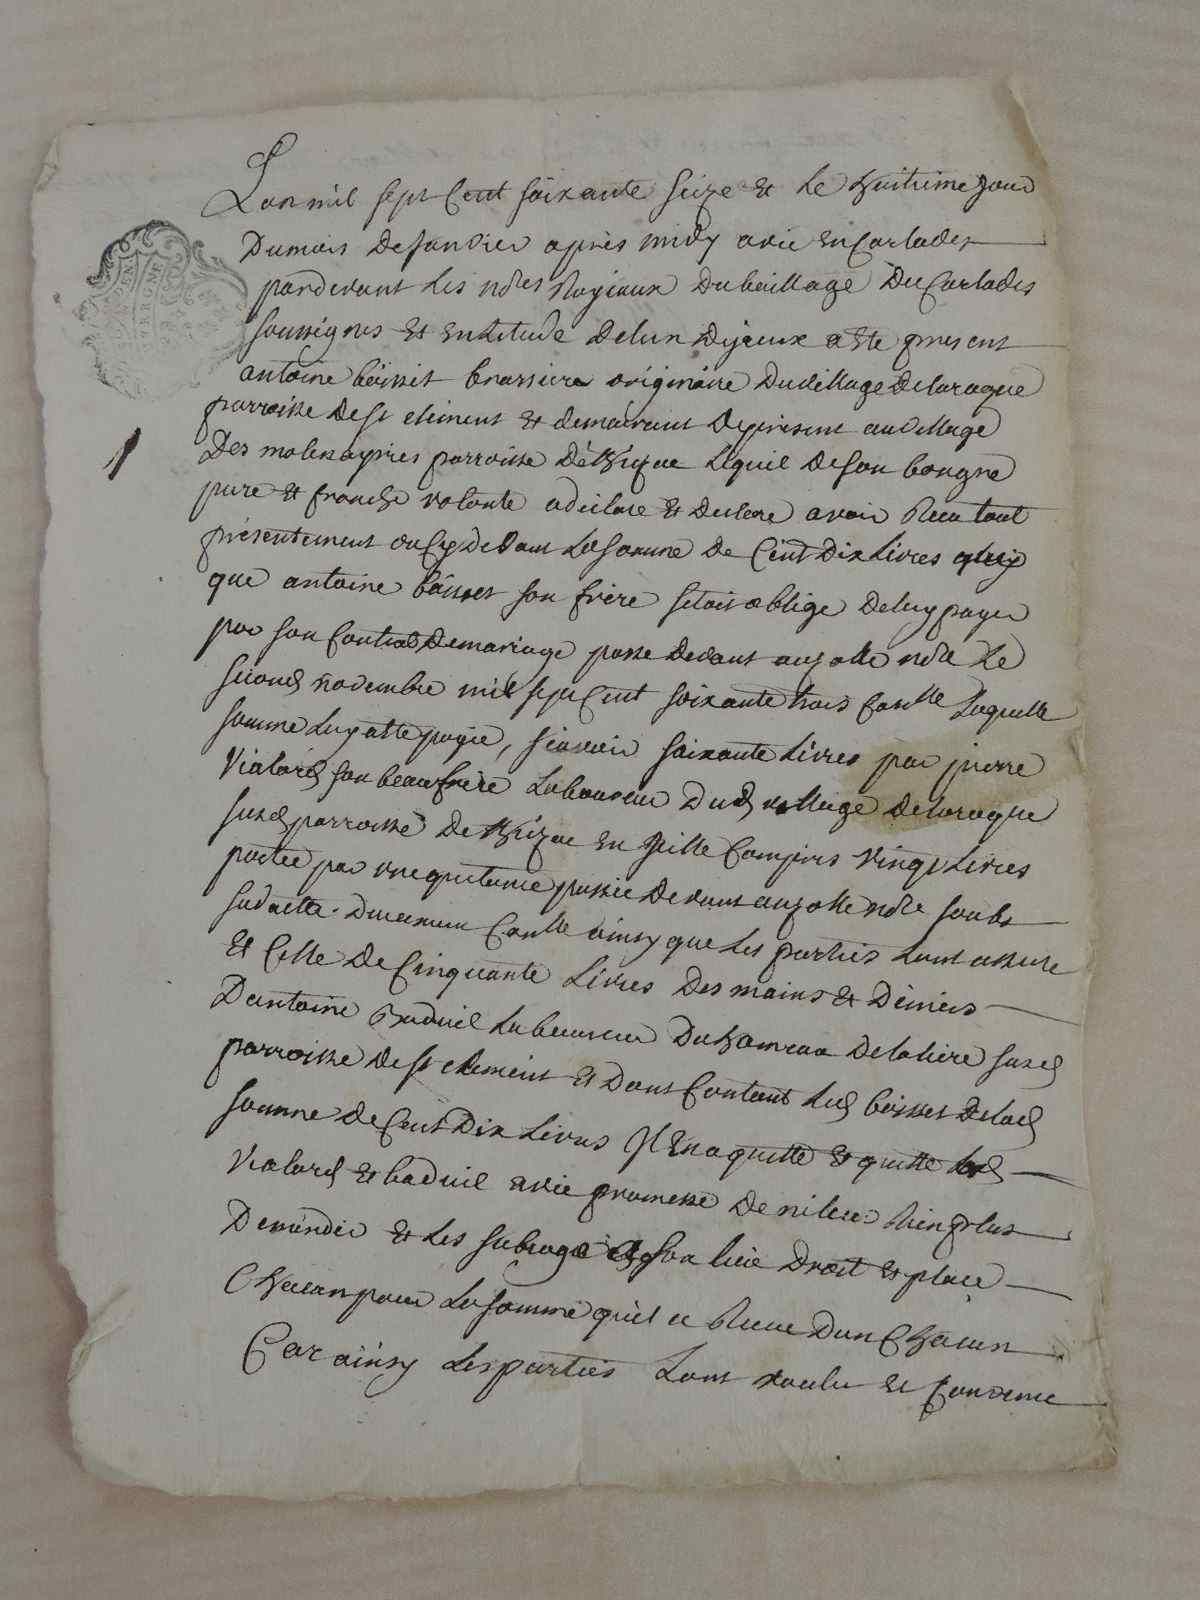 Lan mil sept Cent soixante seize et le huitieme Jour
Dumois De Janvier apres midy a vic En Carlades
pardevant les nores Royaux Du baillage Du Carlades
soussignes et En letude De lun Dijeux a Este present
antoine boisset brassier originaire Du village De laraque
parroisse De st clement et demeurant De present au village
Des molenayries parroisse De thizac lequel De son bongre
pure et franche volonte a declare et Declare avoir Recu tout
presentement ou Cy Devant la somme De Cent Dix livres
que antoine boisset son frere setoit oblige De luy payer
par son Contrat De mariage passe Devant aujolle nore le
second novembre mil sept Cent soixante trois Conlle laquelle
somme luy a Ete payée, scavoir soixante livres par pierre
vialard son beau frere laboureur Dud village De laraque
susd parroisse De thizac En Celle Compris vingt livres
portee par une quitance passee Devant aujolle nore soubs
sa datte. Duement Conlle ainsy que les parties lont assure
et Celle De Cinquante livres Des mains et Deniers
D'antoine Baduel laboureur Du hameau De la susd
parroisse De st clement et Dont Contant led boisset De lad
somme De Cent Dix livres Il En aquitte et quitte lesd
vialard et baduel avec promesse De ne leur Rien plus
Demander et les subroge a son lieu Droit et place
Chacun pour la somme quil a Recue D'un Chacun
Car ainsy les parties lont voulu et Convenu